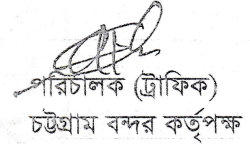 পরিচালক (ট্রাফিক)
চট্টগ্রাম বন্দর কর্তৃপক্ষ